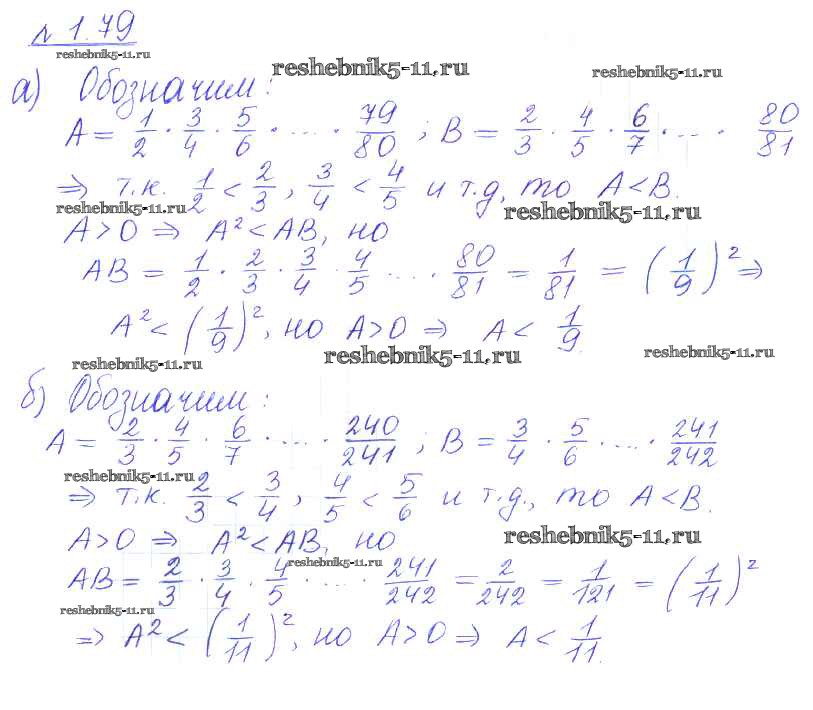 № 1.79
reshebnik5-11.ru
а) Обозначим:
reshebnik5-11.ru
reshebnik5-11.ru
A = 1/2 · 3/4 · 5/6 · ... · 79/80 ; B = 2/3 · 4/5 · 6/7 · ... · 80/81
⇒ т.к. 1/2 < 2/3, 3/4 < 4/5 и т.д, то A < B.
reshebnik5-11.ru
reshebnik5-11.ru
A > 0 ⇒ A² < AB, но
AB = 1/2 · 2/3 · 3/4 · 4/5 ... · 80/81 = 1/81 = (1/9)² ⇒
A² < (1/9)², но A > 0 ⇒ A < 1/9.
reshebnik5-11.ru
reshebnik5-11.ru
reshebnik5-11.ru
б) Обозначим:
A = 2/3 · 4/5 · 6/7 · ... · 240/241 ; B = 3/4 · 5/6 · ... · 241/242
reshebnik5-11.ru
⇒ т.к. 2/3 < 3/4, 4/5 < 5/6 и т.д., то A < B.
A > 0 ⇒ A² < AB, но
reshebnik5-11.ru
reshebnik5-11.ru
AB = 2/3 · 3/4 · 4/5 · ... · 241/242 = 2/242 = 1/121 = (1/11)²
reshebnik5-11.ru
⇒ A² < (1/11)², но A > 0 ⇒ A < 1/11.